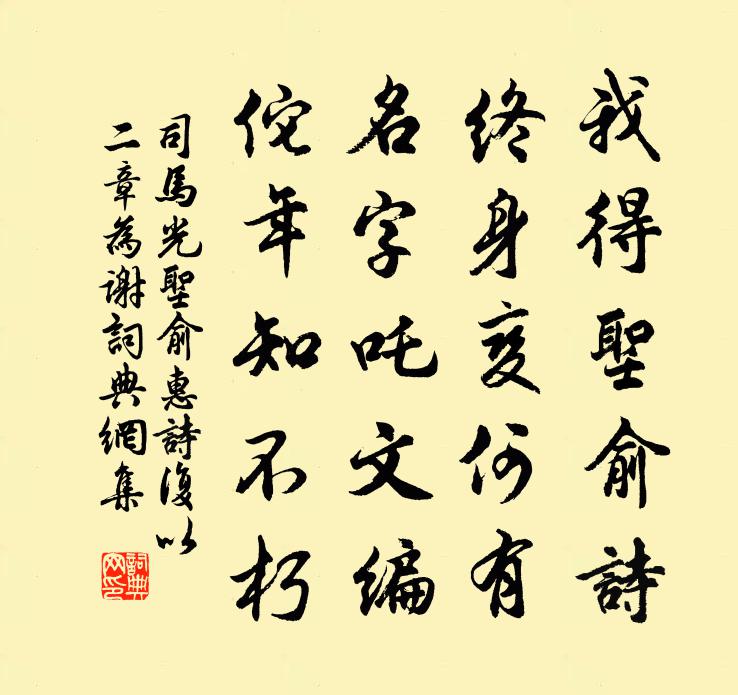 我得聖俞詩
終身变何有
名字吒文編
佗年知不朽
司馬光聖俞惠詩復以
二章為謝詞典網集
詞典
网印